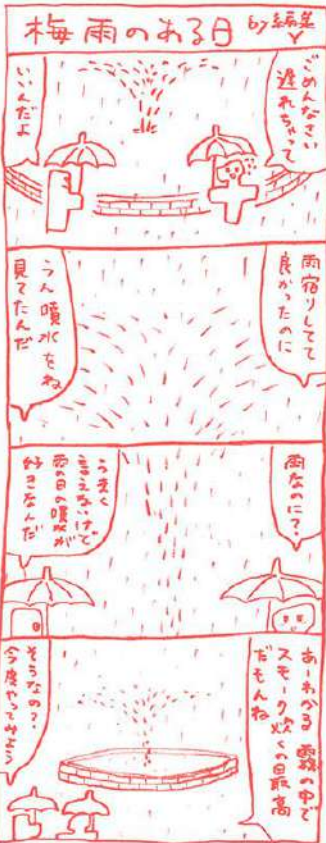 梅雨のある日 by 編差
ごめんなさい
遅れちゃって
いいんだよ
雨宿りしてて
良かったのに
うん 噴水をね
見てたんだ
雨なのに?
うまく
言えないけど
雨の日の噴水が
好きなんだ
あーわかる 霧の中で
スモーク炊くの最高
だもんね
そうなの?
今度やってみよう